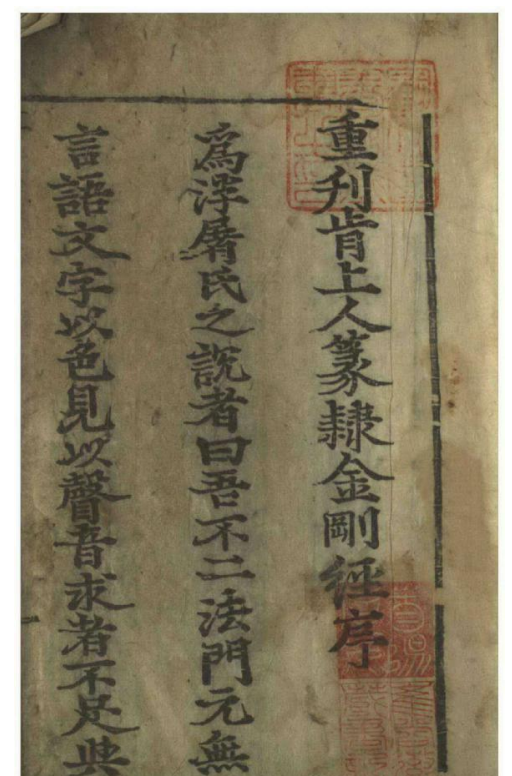 重刋肯上人篆隸金剛經序
爲浮屠氏之説者曰吾不二法門元無
言語文字以色見以聲音求者不足與